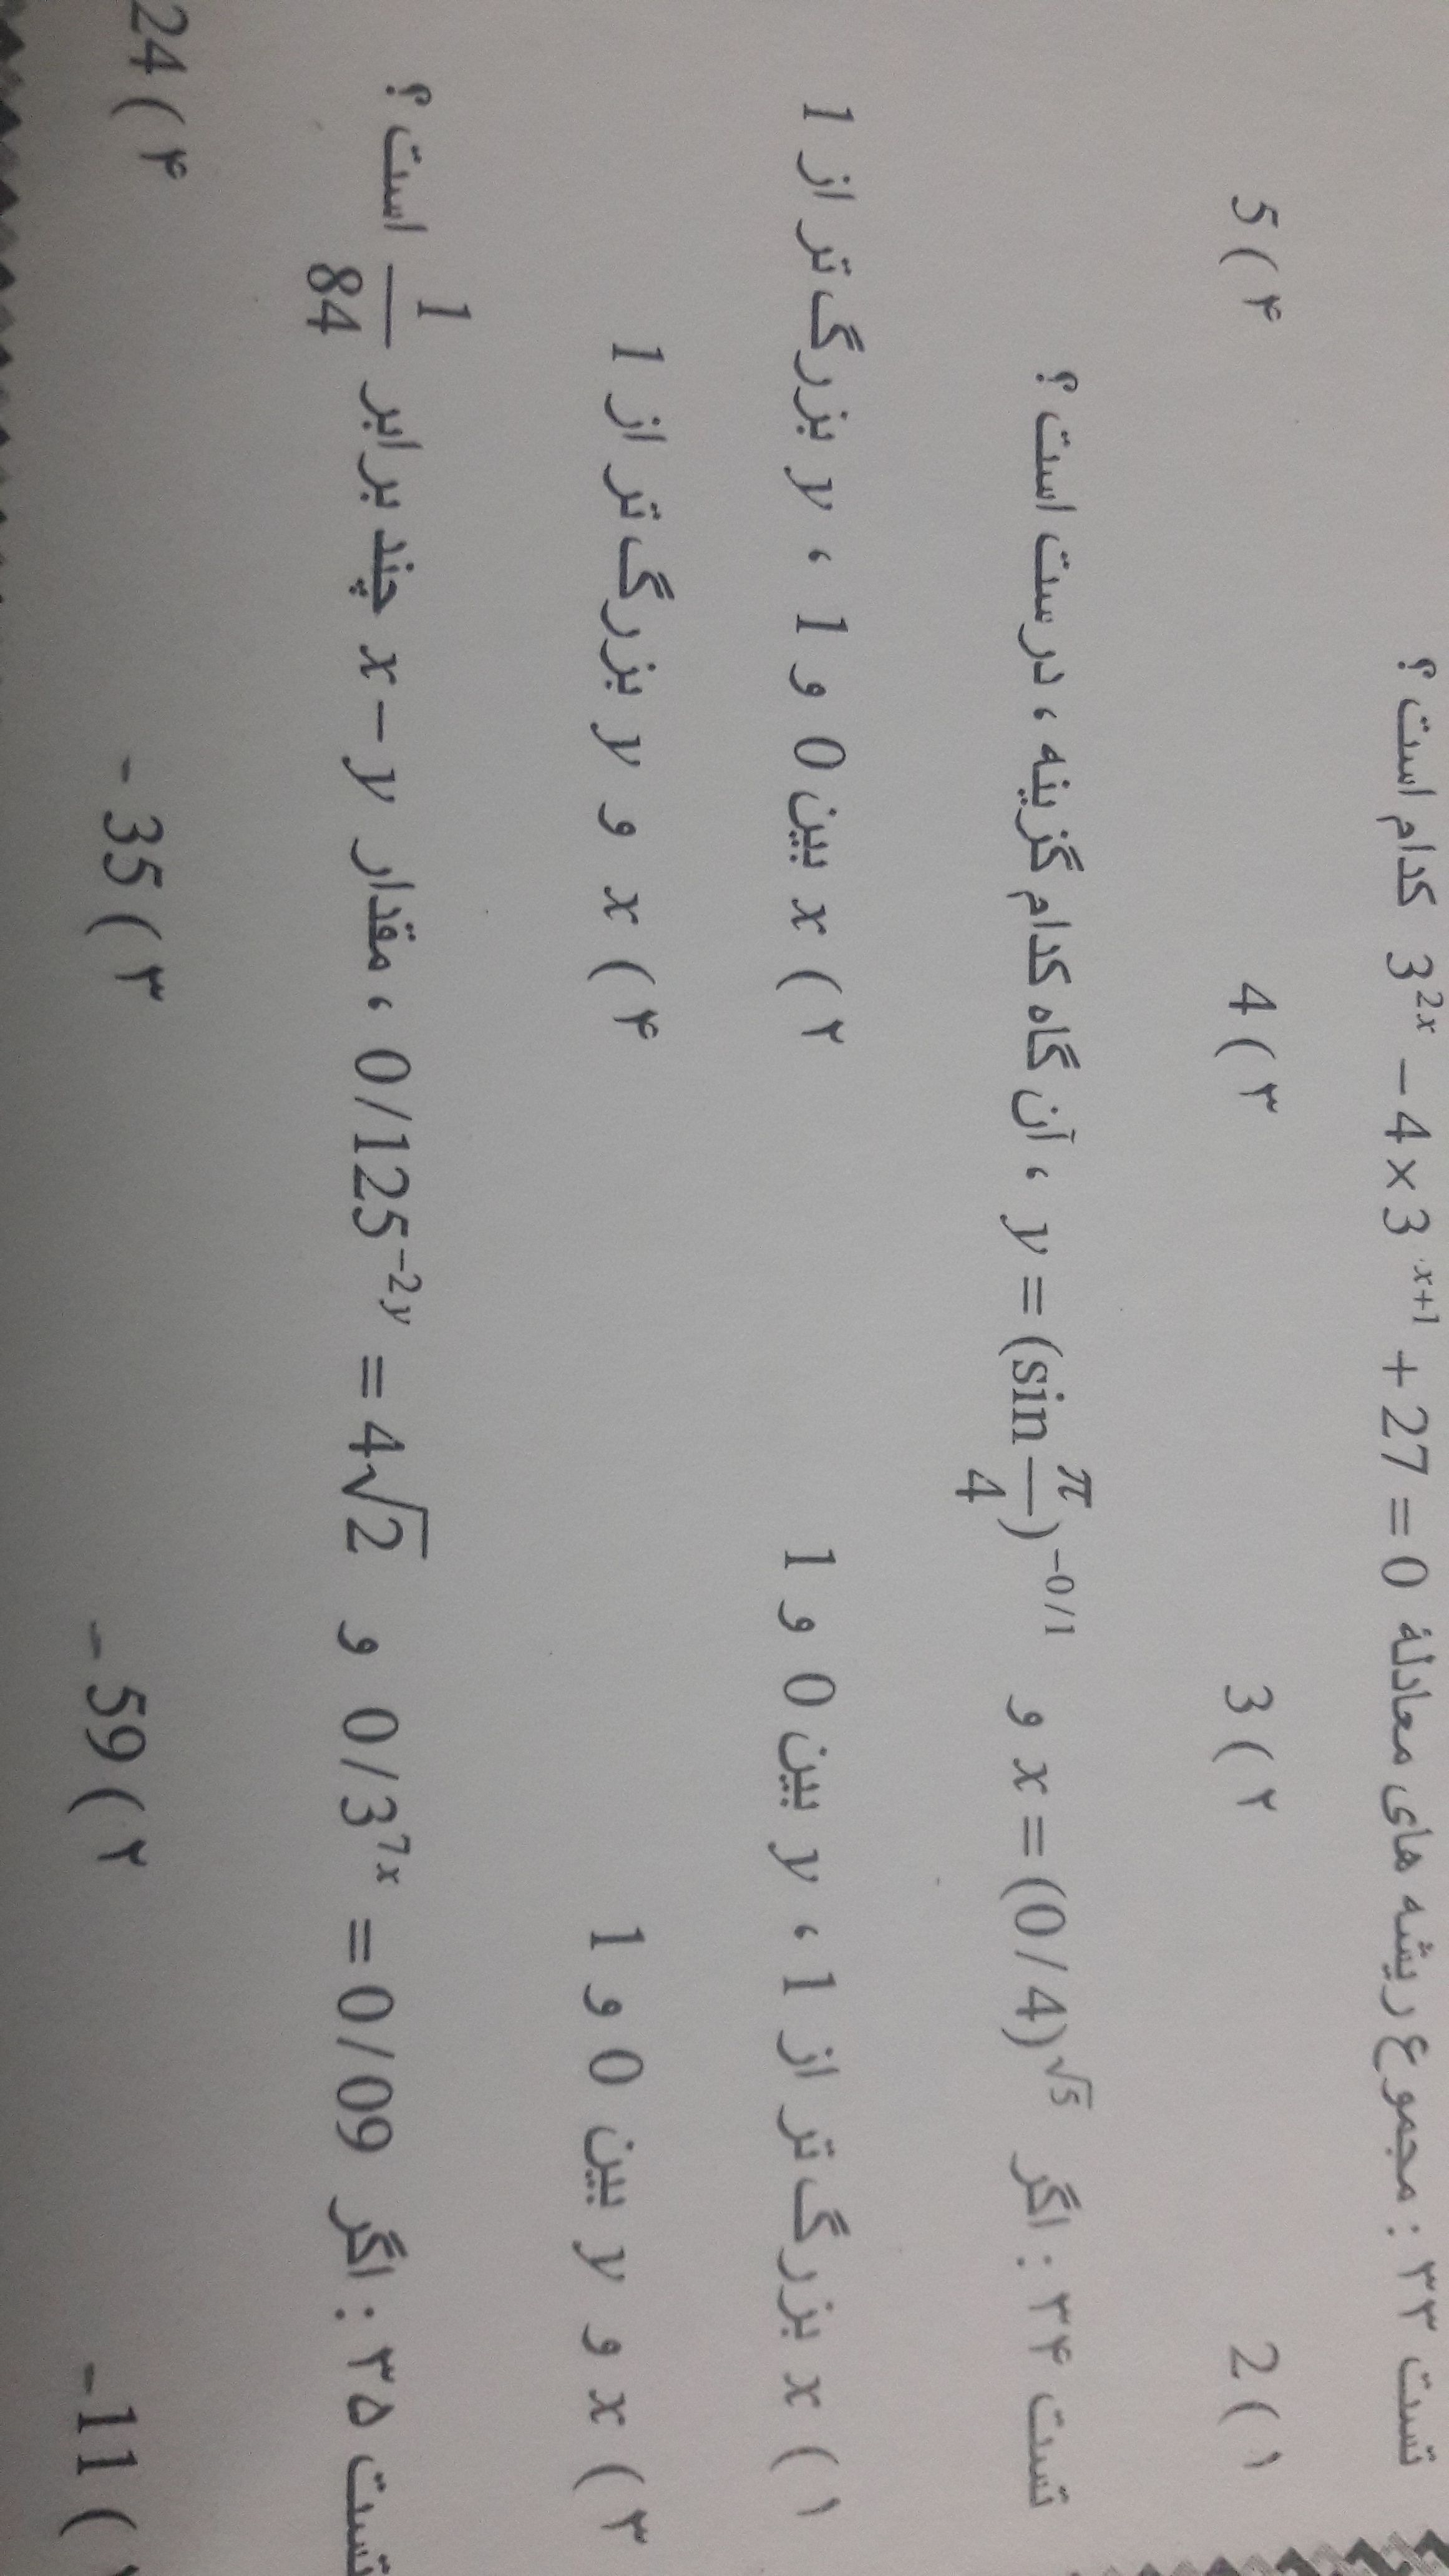 تست ۳۳ : مجموع ریشه های معادلهٔ 3^{2x} − 4 × 3^{x+1} + 27 = 0 کدام است ؟
۱) 2 ۲) 3 ۳) 4 ۴) 5
تست ۳۴ : اگر x = (0/4)^{√5} و y = (sin π/4)^{−0/1} ، آن گاه کدام گزینه ، درست است ؟
۱) x بزرگ تر از 1 ، y بین 0 و 1 ۲) x بین 0 و 1 ، y بزرگ تر از 1
۳) x و y بین 0 و 1 ۴) x و y بزرگ تر از 1
تست ۳۵ : اگر 0/3^{7x} = 0/09 و 0/125^{−2y} = 4√2 ، مقدار x − y چند برابر 1/84 است ؟
۱) −11 ۲) −59 ۳) −35 ۴) 24